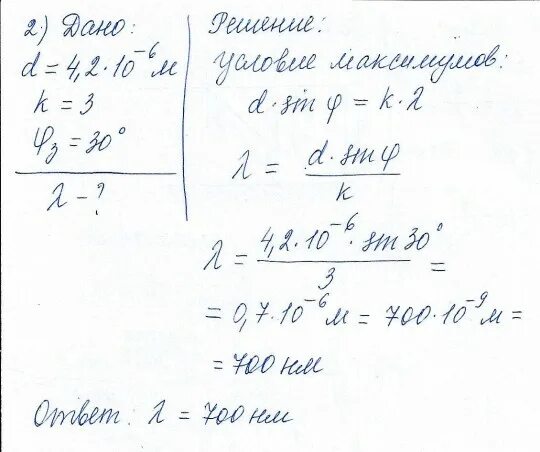 2) Дано:
d = 4,2·10⁻⁶ м
k = 3
φ₃ = 30°
λ - ?
Решение:
Условие максимумов:
d·sin φ = k·λ
λ = d·sin φ / k
λ = 4,2·10⁻⁶·sin 30° / 3 =
= 0,7·10⁻⁶ м = 700·10⁻⁹ м =
= 700 нм
Ответ: λ = 700 нм